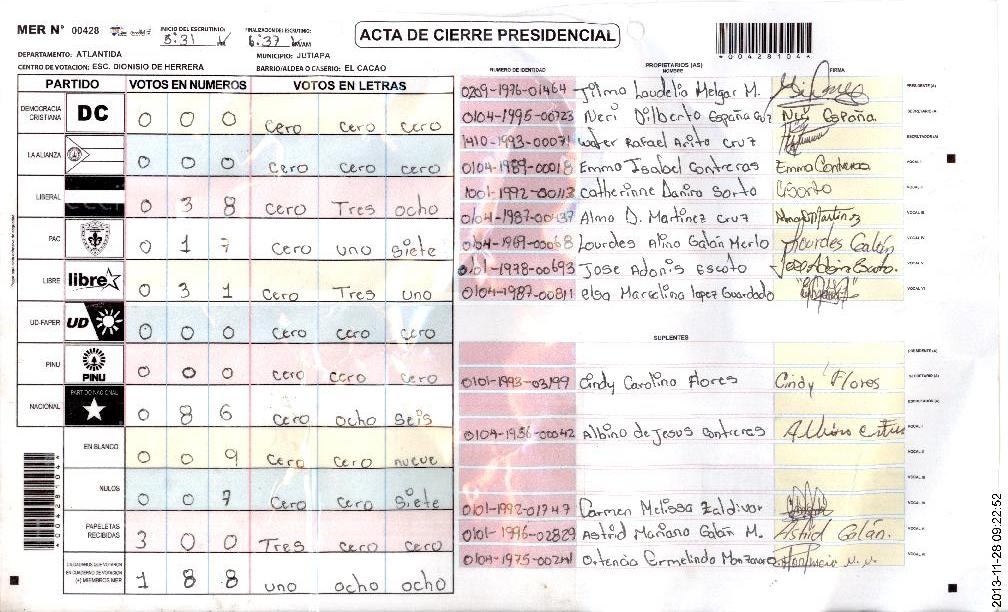 MER N° 00428
INICIO DEL ESCRUTINIO:
5:31
FINALIZACION DEL ESCRUTINIO:
6:37 AM
ACTA DE CIERRE PRESIDENCIAL
*00428104*
DEPARTAMENTO: ATLANTIDA
MUNICIPIO: JUTIAPA
CENTRO DE VOTACION: ESC. DIONISIO DE HERRERA
BARRIO/ALDEA O CASERIO: EL CACAO
PARTIDO VOTOS EN NUMEROS VOTOS EN LETRAS
DEMOCRACIA CRISTIANA DC 0 0 0 cero cero cero
LA ALIANZA 0 0 0 cero cero cero
LIBERAL 0 3 8 cero Tres ocho
PAC 0 1 7 cero uno siete
LIBRE libre 0 3 1 cero Tres uno
UD-FAPER UD 0 0 0 cero cero cero
PINU PINU 0 0 0 cero cero cero
NACIONAL PARTIDO NACIONAL 0 8 6 cero ocho seis
EN BLANCO 0 0 9 cero cero nueve
NULOS 0 0 7 cero cero siete
PAPELETAS RECIBIDAS 3 0 0 Tres cero cero
CIUDADANOS QUE VOTARON EN CUADERNO DE VOTACION (+) MIEMBROS MER 1 8 8 uno ocho ocho
*00428104*
NUMERO DE IDENTIDAD PROPIETARIOS (AS) NOMBRE FIRMA
0209-1976-01464 Melgar M. PRESIDENTE (A)
0104-1995-00723 Neri Dilberto España Neri España SECRETARIO (A)
1410-1993-00071 Rafael Cruz ESCRUTADOR (A)
0104-1989-00018 Emma Isabel Contreras Emma Contreras VOCAL I
1001-1992-00113 Catherinne Sorto VOCAL II
0104-1987-00437 D. Martinez Cruz VOCAL III
0104-1969-00068 Lourdes Galán Merlo Lourdes Galán VOCAL IV
0101-1978-00693 Jose Adonis Escoto VOCAL V
0104-1987-00811 elsa Marcelina lopez Guardado VOCAL VI
SUPLENTES
PRESIDENTE (A)
0101-1993-03199 Cindy Carolina Flores Cindy Flores SECRETARIO (A)
ESCRUTADOR (A)
0104-1956-00042 Albino de Jesus contreras VOCAL I
VOCAL II
VOCAL III
0101-1992-01747 Carmen Melissa Zaldivar VOCAL IV
0101-1996-02829 Astrid Mariana Galán M. Astrid Galán. VOCAL V
0104-1975-00241 Ortencia Ermelinda VOCAL VI
2013-11-28 09:22:52